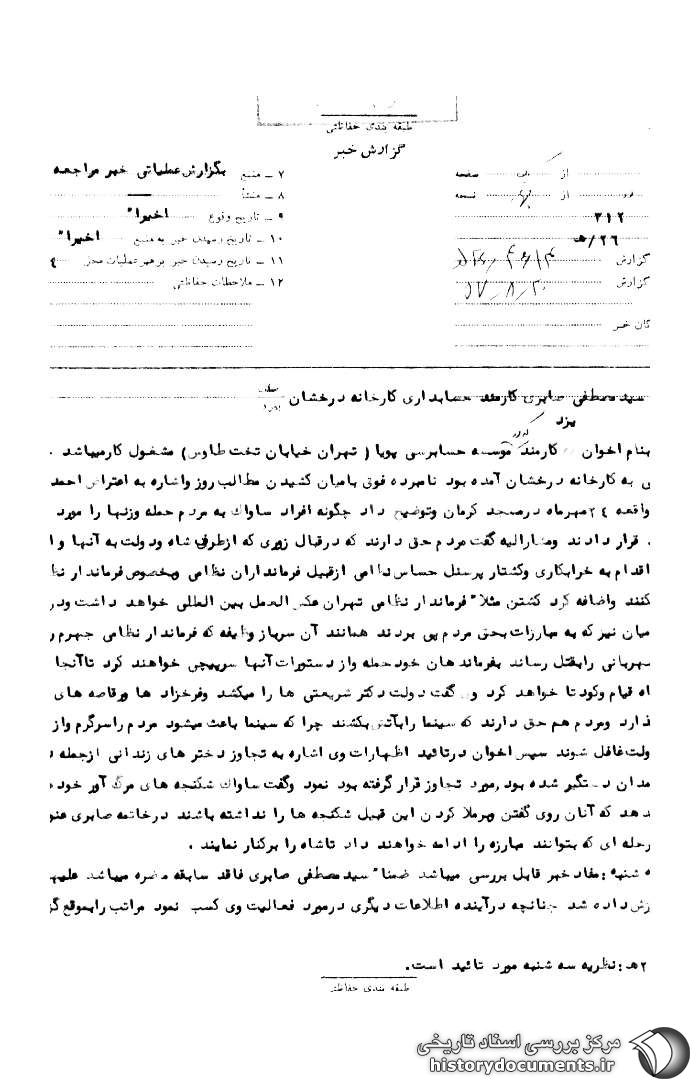 طبقه بندی حفاظتی
گزارش خبر
از یک صفحه
از نسخه
۳۱۲
۲۶/هـ
گزارش
گزارش ۵۷/۸/۲۰
گان خبر
۷ ـ منبع بگزارش عملیاتی خبر مراجعه
۸ ـ منشأ
۹ ـ تاریخ وقوع اخیرا"
۱۰ ـ تاریخ رسیدن خبر به منبع اخیرا"
۱۱ ـ تاریخ رسیدن خبر برهبر عملیات محل ۴
۱۲ ـ ملاحظات حفاظتی
سیدمصطفی صابری کارمند حسابداری کارخانه درخشان
یزد
بنام اخوان که در کارمند موسسه حسابرسی پویا ( تهران خیابان تخت طاوس) مشغول کارمیباشد
ی به کارخانه درخشان آمده بود نامبرده فوق بامیان کشیدن مطالب روز واشاره به اعتراض احمد
واقعه ۲۴مهرماه درمسجد کرمان وتوضیح داد چگونه افراد ساواک به مردم حمله وزنها را مورد
قرار دادند ومشارالیه گفت مردم حق دارند که درقبال زوری که ازطرق شاه ودولت به آنها و ا
اقدام به خرابکاری وکشتار پرسنل حساس نظامی ازقبیل فرمانداران نظامی وبخصوص فرماندار نظ
کنند واضافه کرد کشتن مثلا" فرماندار نظامی تهران عکس العمل بین المللی خواهد داشت ودر
میان نیز که به مبارزات بحق مردم پی بردند همانند آن سرباز وظیفه که فرماندار نظامی جهرم ر
شهربانی رابقتل رساند بفرماندهان خودحمله واز دستورات آنها سرپیچی خواهند کرد تاآنجا
اه قیام وکودتا خواهد کرد وی گفت دولت دکتر شریعتی ها را میکشد وفرخزاد ها ورقاصه های
ذارد ومردم هم حق دارند که سینما رابآتش بکشند چرا که سینما باعث میشود مردم راسرگرم واز
ولت غافل شوند سپس اخوان درتائید اظهارات وی اشاره به تجاوز دختر های زندانی ازجمله
مدان دستگیر شده بود ,مورد تجاوز قرار گرفته بود نمود وگفت ساواک شکنجه های مرگ آور خود
دهد که آنان روی گفتن وبرملا کردن این قبیل شکنجه ها را نداشته باشند درخاتمه صابری عنو
رحله ای که بتوانند مبارزه را ادامه خواهند داد تاشاه را برکنار نمایند .
ه شنبه :مفاد خبر قابل بررسی میباشد ضمنا" سیدمصطفی صابری فاقد سابقه مضره میباشد علیه
زش داده شد چنانچه درآینده اطلاعات دیگری درمورد فعالیت وی کسب نمود مراتب رابموقع گز
۲هـ :نظریه سه شنبه مورد تائید است.
طبقه بندی حفاظتی
مرکز بررسی اسناد تاریخی
historydocuments.ir